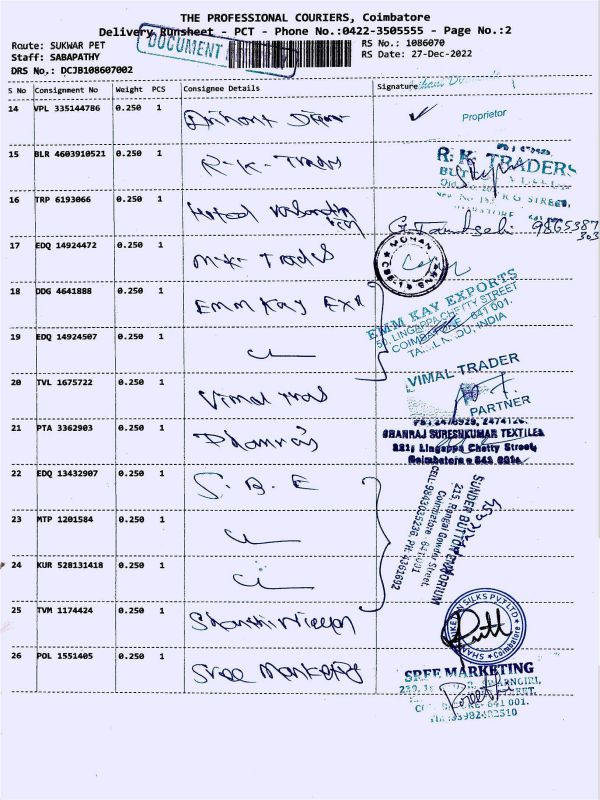 THE PROFESSIONAL COURIERS, Coimbatore
Delivery Runsheet - PCT - Phone No.:0422-3505555 - Page No.:2
Route: SUKWAR PET
RS No.: 1086070
Staff: SABAPATHY
DOCUMENT
RS Date: 27-Dec-2022
DRS No.: DCJB108607002
S No Consignment No Weight PCS Consignee Details Signature
14 VPL 335144786 0.250 1
Proprietor
15 BLR 4603910521 0.250 1 R.K. Trady
R. K. TRADERS
16 TRP 6193066 0.250 1 Hotel
R G STREET,
98653873o3
17 EDQ 14924472 0.250 1 M.K. Trades
MOHAN
CBE-1
18 DDG 4641888 0.250 1 EMM KAY EXP
EMM KAY EXPORTS
50, LINGAPPA CHETTY STREET
COIMBATORE - 641 001.
TAMIL NADU, INDIA
19 EDQ 14924507 0.250 1
20 TVL 1675722 0.250 1 Vimal Trad
VIMAL TRADER
PARTNER
21 PTA 3362903 0.250 1 Dhanraj
DHANRAJ SURESHKUMAR TEXTILES
221, Lingappa Chetty Street,
Coimbatore - 641 001.
22 EDQ 13432907 0.250 1 S. B. E
23 MTP 1201584 0.250 1
24 KUR 528131418 0.250 1
SUNDER BUTTON EMPORIUM
215, Rangai Gowder Street,
Coimbatore 641 001
CELL: 9843035236, PH: 4361692
25 TVM 1174424 0.250 1 Shanthi Niketan
SHANTHI NIKETAN SILKS PVT LTD
Coimbatore
26 POL 1551405 0.250 1 Sree Marketing
SREE MARKETING
COIMBATORE- 641 001.